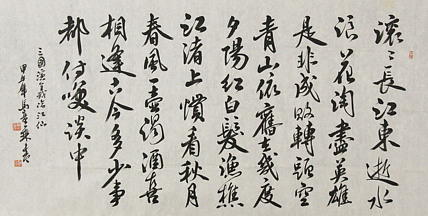 滚〻长江东逝水
浪花淘盡英雄
是非成敗轉頭空
青山依舊在幾度
夕陽红白髮漁樵
江渚上慣看秋月
春風一壺濁酒喜
相逢古今多少事
都付笑談中
三國演義临江仙